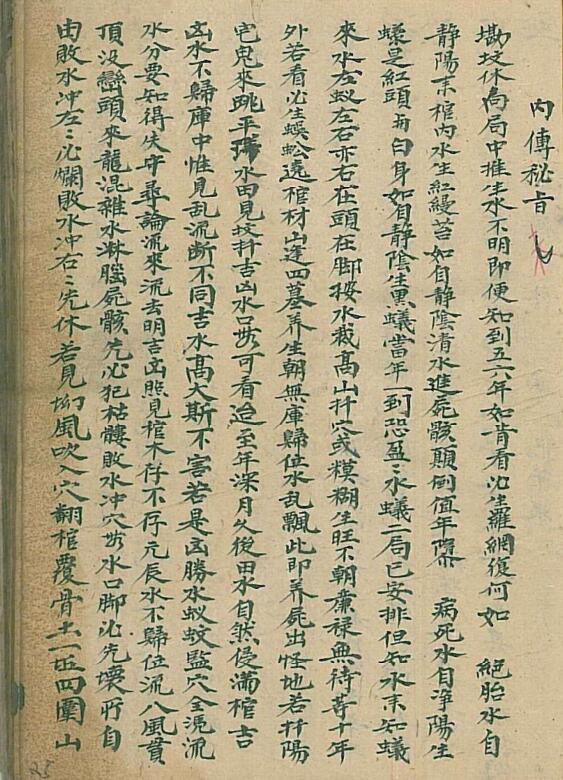 內傳秘旨
勘坟休向局中推生水不明即便知到五六年如昔看必生羅網復何如 絕胎水自
靜陽來棺內水生紅縵苔如自靜陰清水進屍骸顛倒值年 病死水自淨陽生
蟻是紅頭 白身如自靜陰生黑蟻當年一到恐盈〻水蟻二局已安排但知水來知蟻
來水左蚁左右亦右在頭在脚按水裁高山扦穴或糢糊生旺不朝兼祿無待等十年
外若看必生蜈蚣遶棺材山逢四墓养生朝無庫歸位水乱飄此即养屍出怪地若扦陽
宅鬼來跳平 水田見坟扦吉凶水口 可看迨至年深月久後田水自然侵滿棺吉
凶水不歸庫中惟見乱流断不同吉水高大斯不害若是凶勝水蚁蚊監穴全 流
水分要知得失字尋論流來流去明吉凶照見棺木存不存元辰水不歸位流八風貫
頂没巒頭來龍混雜水淋腦屍骸先必犯枯髏敗水冲穴 水口脚必先壞所自
由敗水冲左〻必爛敗水冲右〻先休若見坳風吹入穴翻棺覆骨土一 四圍山